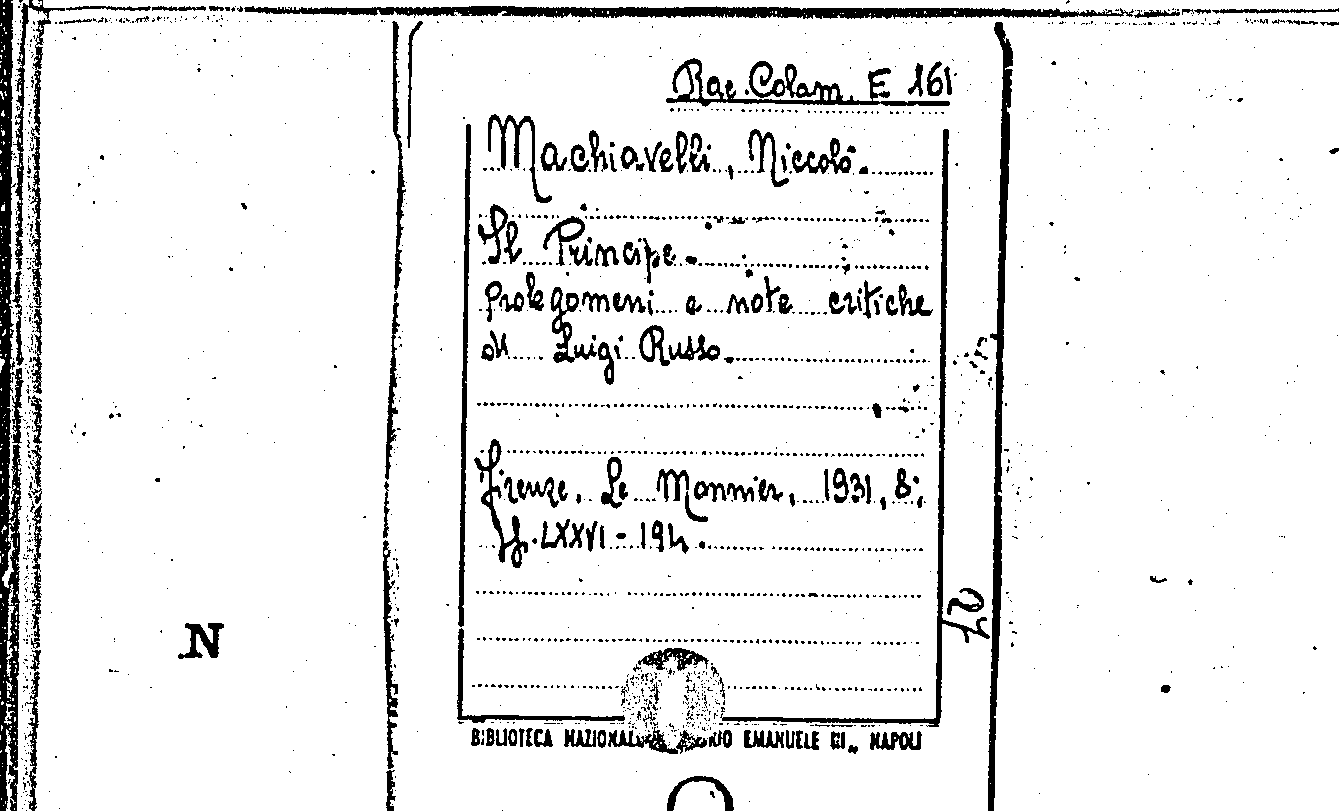 Rac. Colam. E 161
Machiavelli, Niccolò.
Il Principe.
prolegomeni e note critiche
di Luigi Russo.
Firenze, Le Monnier, 1931, 8°,
pp. LXXVI - 194.
N
BIBLIOTECA NAZIONALE EMANUELE III„ NAPOLI